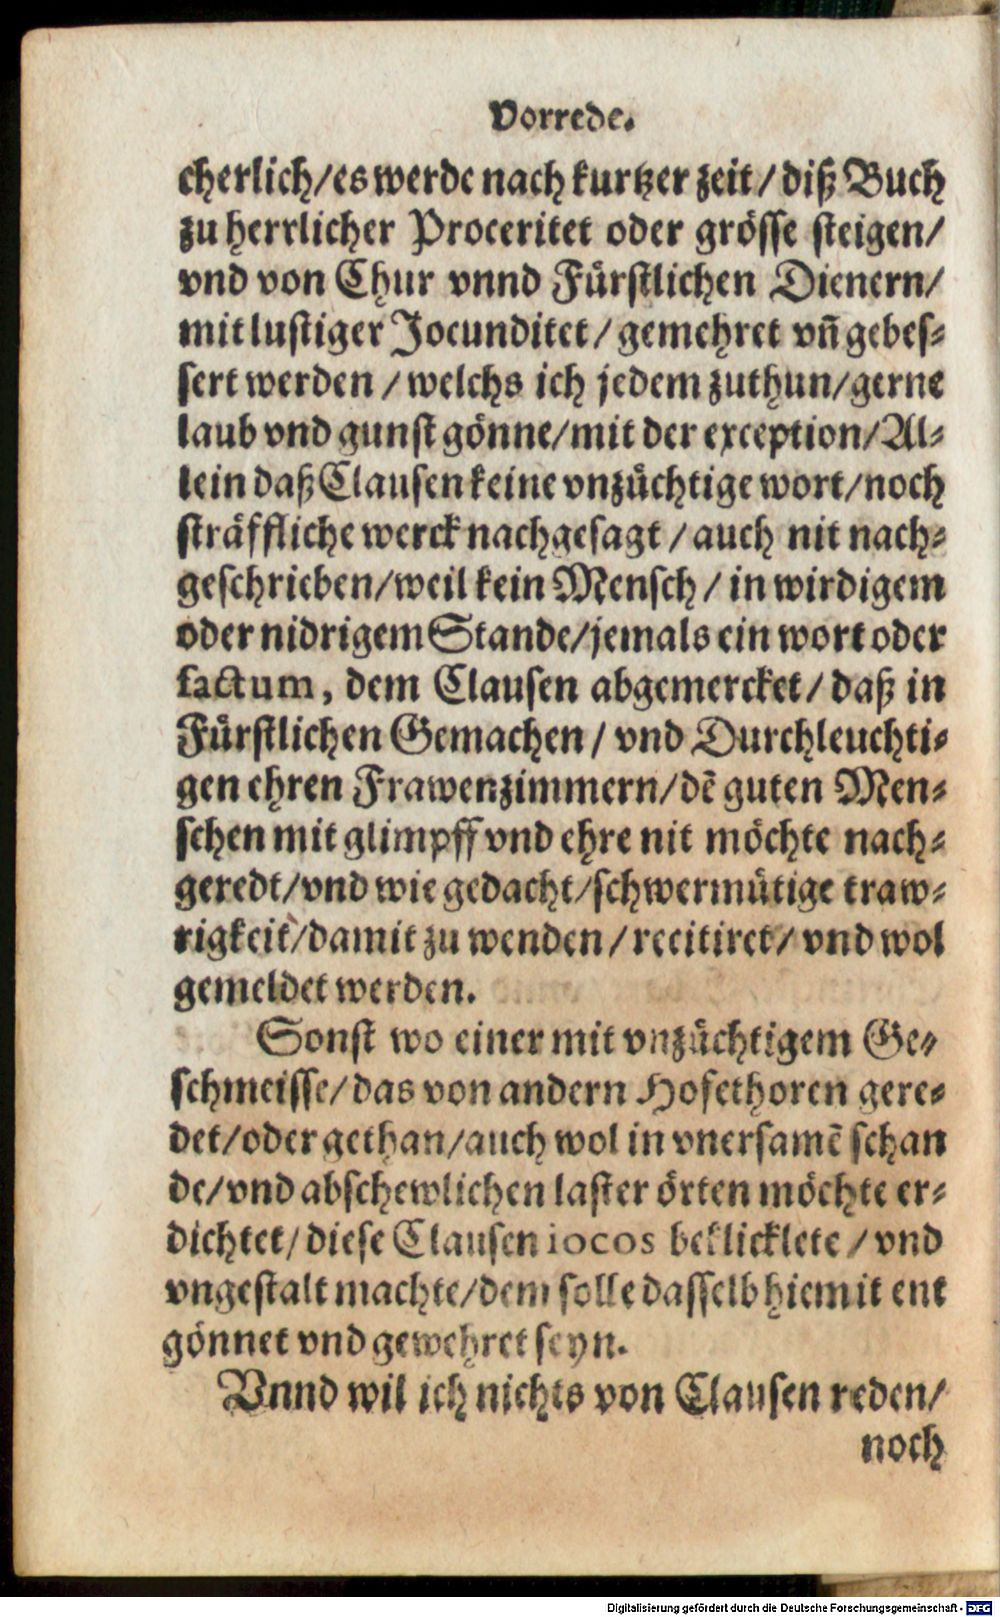 Vorrede.
cherlich/es werde nach kurtzer zeit/diß Buch
zu herrlicher Proceritet oder grösse steigen/
vnd von Chur vnnd Fürstlichen Dienern/
mit lustiger Jocunditet/gemehret vñ gebes⸗
sert werden/welchs ich jedem zuthun/gerne
laub vnd gunst gönne/mit der exception/Al⸗
lein daß Clausen keine vnzüchtige wort/noch
sträffliche werck nachgesagt/auch nit nach⸗
geschrieben/weil kein Mensch/in wirdigem
oder nidrigem Stande/jemals ein wort oder
factum, dem Clausen abgemercket/daß in
Fürstlichen Gemachen/vnd Durchleuchti⸗
gen ehren Frawenzimmern/dē guten Men⸗
schen mit glimpff vnd ehre nit möchte nach⸗
geredt/vnd wie gedacht/schwermütige traw⸗
rigkeit/damit zu wenden/recitiret/vnd wol
gemeldet werden.
Sonst wo einer mit vnzüchtigem Ge⸗
schmeisse/das von andern Hofethoren gere⸗
det/oder gethan/auch wol in vnersamē schan
de/vnd abschewlichen laster örten möchte er⸗
dichtet/diese Clausen iocos beklicklete/vnd
vngestalt machte/dem solle dasselb hiemit ent
gönnet vnd gewehret seyn.
Vnnd wil ich nichts von Clausen reden/
noch
Digitalisierung gefördert durch die Deutsche Forschungsgemeinschaft - DFG